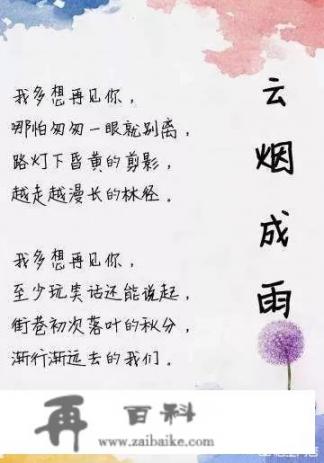 云烟成雨
我多想再见你，
哪怕匆匆一眼就别离，
路灯下昏黄的剪影，
越走越漫长的林径。
我多想再见你，
至少玩笑话还能说起，
街巷初次落叶的秋分，
渐行渐远去的我们。
再百科
www.zaibaike.com